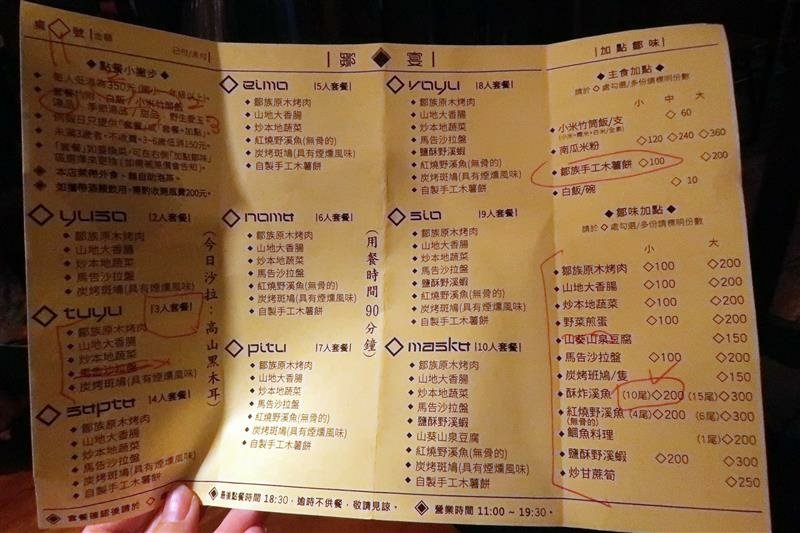 桌 號 |金額 已付/未付
◆點餐小撇步◆
◆ 每人低消為350元(國小一年級以上)
◆ 未滿3歲者,不收費。3~6歲酌消150元。
◆ 本店禁帶外食、麵自助泡茶。
yuso |2人套餐|
◆鄒族原木烤肉
◆山地大香腸
◆炒本地蔬菜
◆馬告沙拉盤
◆炭烤斑鳩(具有煙燻風味)
tuyu |3人套餐|
◆鄒族原木烤肉
◆山地大香腸
◆炒本地蔬菜
◆馬告沙拉盤
◆炭烤斑鳩(具有煙燻風味)
sʉptʉ |4人套餐|
◆鄒族原木烤肉
◆山地大香腸
◆炒本地蔬菜
◆馬告沙拉盤
◆炭烤斑鳩(具有煙燻風味)
◆自製手工木薯餅
(今日沙拉:高山黑木耳)
| 鄒 ◆ 宴 |
eimo |5人套餐|
◆鄒族原木烤肉
◆山地大香腸
◆炒本地蔬菜
◆馬告沙拉盤
◆紅燒野溪魚(無骨的)
◆炭烤斑鳩(具有煙燻風味)
◆自製手工木薯餅
nomə |6人套餐|
◆鄒族原木烤肉
◆山地大香腸
◆炒本地蔬菜
◆馬告沙拉盤
◆紅燒野溪魚(無骨的)
◆炭烤斑鳩(具有煙燻風味)
◆自製手工木薯餅
pitu |7人套餐|
◆鄒族原木烤肉
◆山地大香腸
◆炒本地蔬菜
◆馬告沙拉盤
◆紅燒野溪魚(無骨的)
◆炭烤斑鳩(具有煙燻風味)
◆自製手工木薯餅
(用餐時間90分鐘)
voyu |8人套餐|
◆鄒族原木烤肉
◆山地大香腸
◆炒本地蔬菜
◆馬告沙拉盤
◆鹽酥野溪蝦
◆紅燒野溪魚(無骨的)
◆炭烤斑鳩(具有煙燻風味)
◆自製手工木薯餅
sio |9人套餐|
◆鄒族原木烤肉
◆山地大香腸
◆炒本地蔬菜
◆馬告沙拉盤
◆鹽酥野溪蝦
◆紅燒野溪魚(無骨的)
◆炭烤斑鳩(具有煙燻風味)
◆自製手工木薯餅
maskʉ |10人套餐|
◆鄒族原木烤肉
◆山地大香腸
◆炒本地蔬菜
◆馬告沙拉盤
◆鹽酥野溪蝦
◆山葵山泉豆腐
◆紅燒野溪魚(無骨的)
◆炭烤斑鳩(具有煙燻風味)
◆自製手工木薯餅
| 加點鄒味 |
◆主食加點◆
請於◇處勾選/多份請標明份數
小 中 大
◆小米竹筒飯/支 ◇ 60
(小米+糯米+白米/全素)
◆南瓜米粉 ◇120 ◇240 ◇360
◆鄒族手工木薯餅 ◇100 ◇200
◆白飯/碗 ◇ 10
◆鄒味加點◆
請於◇處勾選/多份請標明份數
小 大
◆鄒族原木烤肉 ◇100 ◇200
◆山地大香腸 ◇100 ◇200
◆炒本地蔬菜 ◇100 ◇200
◆野菜煎蛋 ◇100 ◇200
◆山葵山泉豆腐 ◇150
◆馬告沙拉盤 ◇100 ◇200
◆炭烤斑鳩/隻 ◇150
◆酥炸溪魚 (10尾)◇200 (15尾)◇300
◆紅燒野溪魚 (4尾)◇200 (6尾)◇300
(無骨的)
◆鯝魚料理 (1尾)◇200
◆鹽酥野溪蝦 ◇200 ◇300
◆炒甘蔗筍 ◇250
◆套餐確認後請於◇
◆最後點餐時間 18:30,逾時不供餐,敬請見諒。 ◆營業時間 11:00 ~ 19:30。